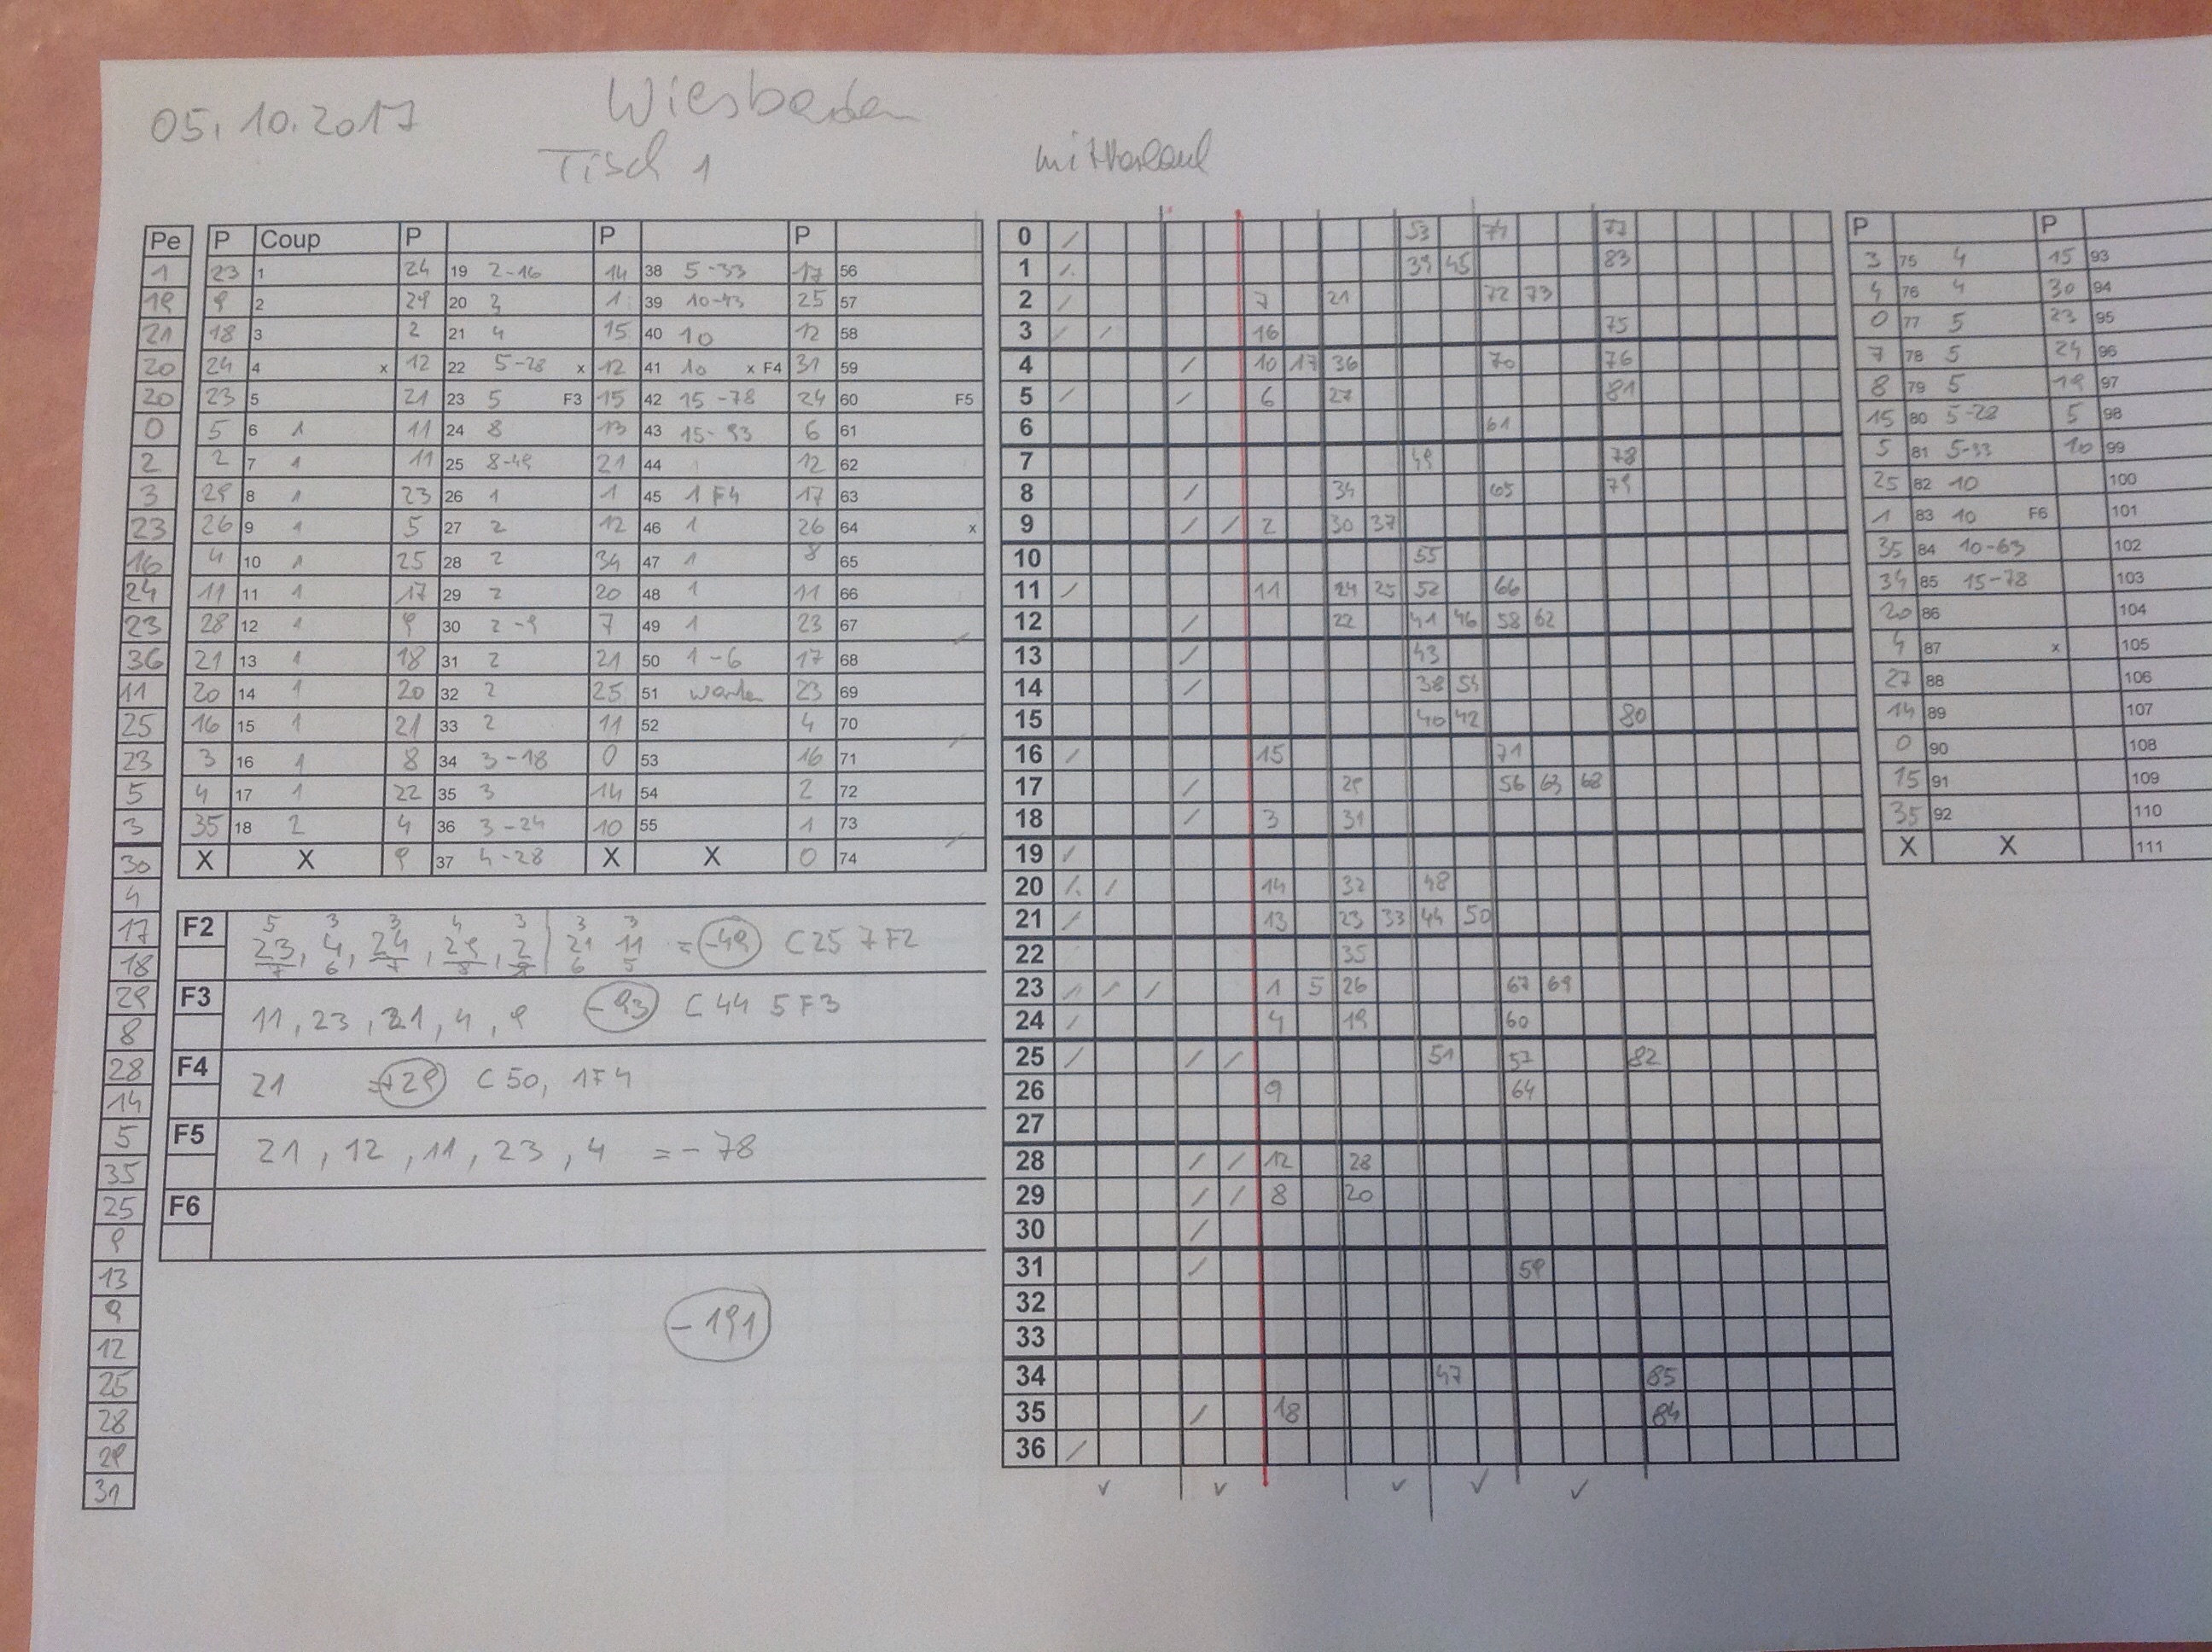 05.10.2017 Wiesbaden
Tisch 1 mit Vorlauf
Pe P Coup P P P
1 23 1 24 19 2-16 14 38 5-33 17 56
19 9 2 29 20 3 1 39 10-43 25 57
21 18 3 2 21 4 15 40 10 12 58
20 24 4 x 12 22 5-28 x 12 41 10 x F4 31 59
20 23 5 21 23 5 F3 15 42 15-78 24 60 F5
0 5 6 1 11 24 8 13 43 15-93 6 61
2 2 7 1 11 25 8-49 21 44 12 62
3 29 8 1 23 26 1 1 45 1 F4 17 63
23 26 9 1 5 27 2 12 46 1 26 64 x
16 4 10 1 25 28 2 34 47 1 8 65
24 11 11 1 17 29 2 20 48 1 11 66
23 28 12 1 9 30 2-9 7 49 1 23 67
36 21 13 1 18 31 2 21 50 1-6 17 68
11 20 14 1 20 32 2 25 51 warten 23 69
25 16 15 1 21 33 2 11 52 4 70
23 3 16 1 8 34 3-18 0 53 16 71
5 4 17 1 22 35 3 14 54 2 72
3 35 18 2 4 36 3-24 10 55 1 73
30 X X 9 37 4-28 X X 0 74
4
17
18
29
8
28
14
5
35
25
9
13
9
12
25
28
29
31
5 3 3 4 3 3 3
F2 23, 4, 24, 29, 2 | 21 11 = -49 C25 7F2
7 6 7 8 9 6 5
F3 11, 23, 21, 4, 9 -93 C44 5F3
F4 21 =+29 C50, 1F4
F5 21, 12, 11, 23, 4 = -78
F6
-191
0 / 53 74 77
1 / 39 45 83
2 / 7 21 72 73
3 / / 16 75
4 / 10 17 36 70 76
5 / / 6 27 81
6 61
7 49 78
8 / 34 65 79
9 / / 2 30 37
10 55
11 / 11 24 25 52 66
12 / 22 41 46 58 62
13 / 43
14 / 38 54
15 40 42 80
16 / 15 71
17 / 29 56 63 68
18 / 3 31
19 /
20 / / 14 32 48
21 / 13 23 33 44 50
22 35
23 / / / 1 5 26 67 69
24 / 4 19 60
25 / / / 51 57 82
26 9 64
27
28 / / 12 28
29 / / 8 20
30 /
31 / 59
32
33
34 47 85
35 / 18 84
36 /
✓ ✓ ✓ ✓ ✓
P P
3 75 4 15 93
4 76 4 30 94
0 77 5 23 95
7 78 5 24 96
8 79 5 19 97
15 80 5-28 5 98
5 81 5-33 10 99
25 82 10 100
1 83 10 F6 101
35 84 10-63 102
34 85 15-78 103
20 86 104
4 87 x 105
27 88 106
14 89 107
0 90 108
15 91 109
35 92 110
X X 111